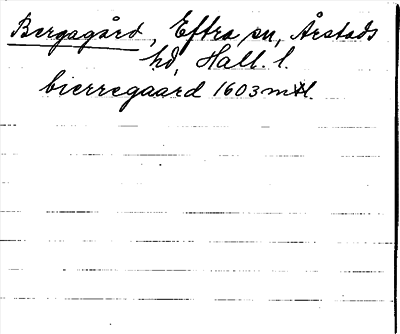 Bergagård, Eftra sn, Årstads
hd, Hall. l.
bierregaard 1603 mtl.